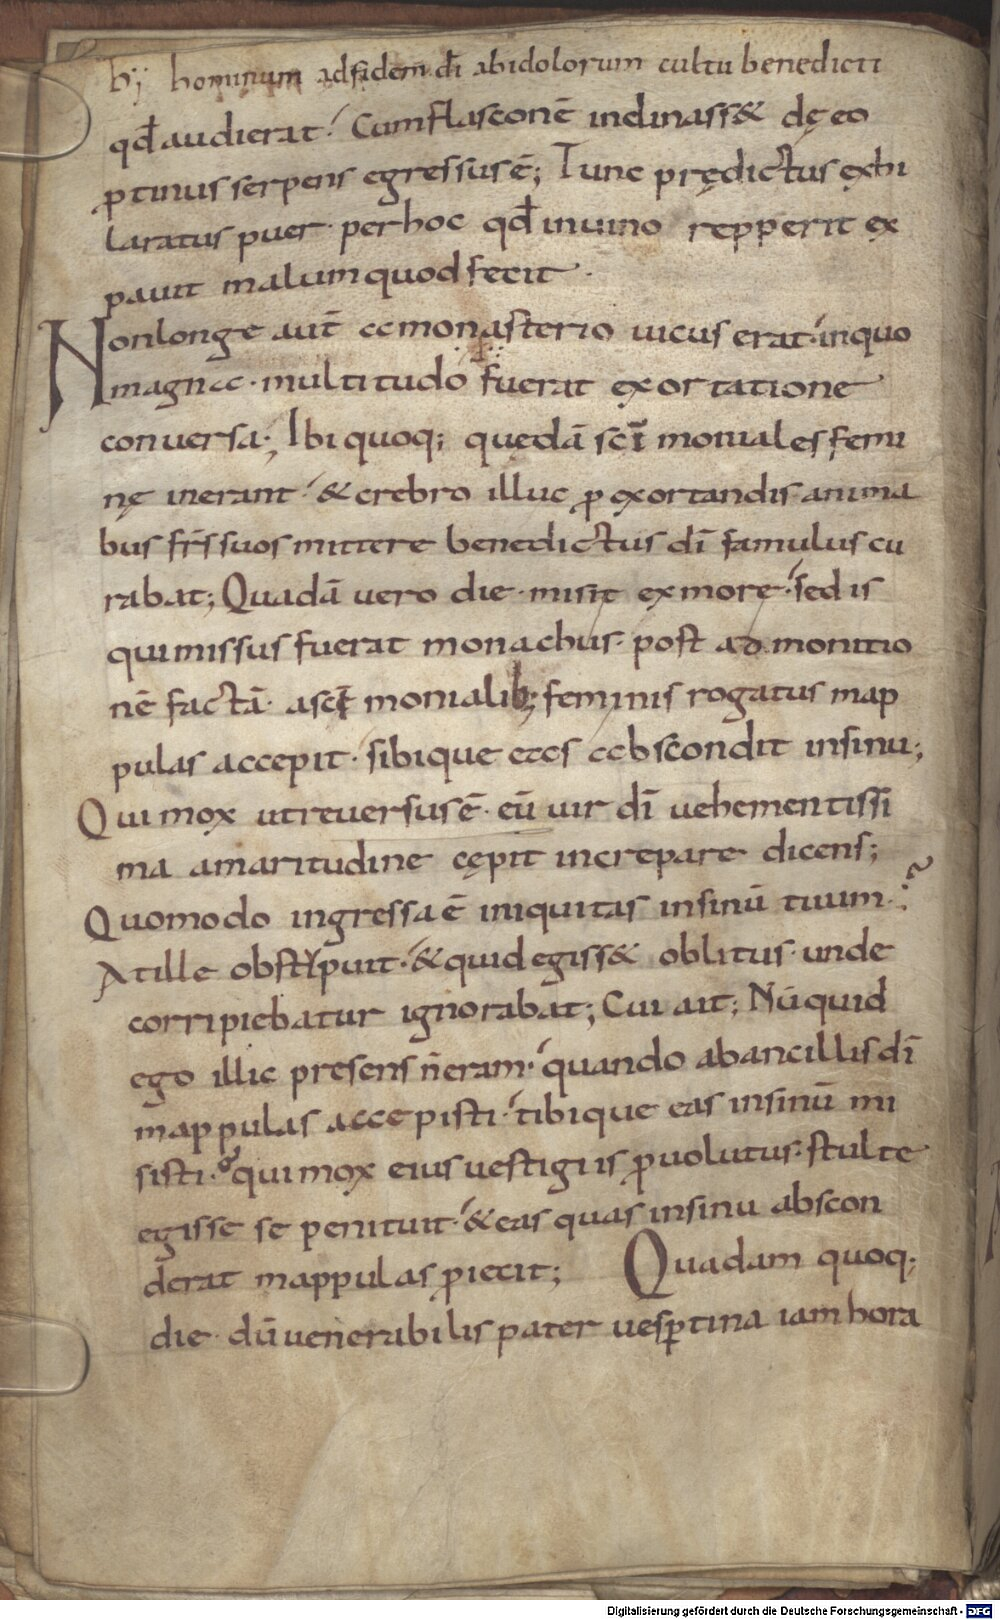 hominum adfidem dī abidolorum cultu benedicti
qd̄ audierat. Cum flasconē inclinass& dęeo
ꝓtinus serpens egressus ē; Tunc prędictus exhi
laratus puer. perhoc qd̄ inuino repperit ex
pauit malum quod fecit.
Nonlonge aut̄ a monasterio uicus erat. inquo
magna. multitudo fuerat exortatione
conuersa; Ibi quoq; quędā sc̄i moniales femi
nę inerant. & crebro illuc ꝓ exortandis anima
bus fr̄s suos mittere benedictus dī famulus cu
rabat; Quadā uero die. misit exmore. sed is
qui missus fuerat monachus. post admonitio
nē factā. asc̄t monialib; feminis rogatus map
pulas accepit. sibique eas abscondit insinu;
Qui mox utreuersus ē. eū uir dī uehementissi
ma amaritudine cępit increpare dicens;
Quomodo ingressa ē iniquitas insinū tuum.
Atille obstipuit. & quid egiss& oblitus. unde
corripiebatur ignorabat; Cui ait; Nūquid
ego illic presens n̄ eram. quando abancillis dī
mappulas accepisti. tibique eas insinū mi
sisti. qui mox eius uestigiis ꝓuolutus. stulte
egisse se penituit. & eas quas insinu abscon
derat mappulas ꝓiecit; Quadam quoq;
die. dū uenerabilis pater uesꝑtina iam hora
Digitalisierung gefördert durch die Deutsche Forschungsgemeinschaft - DFG